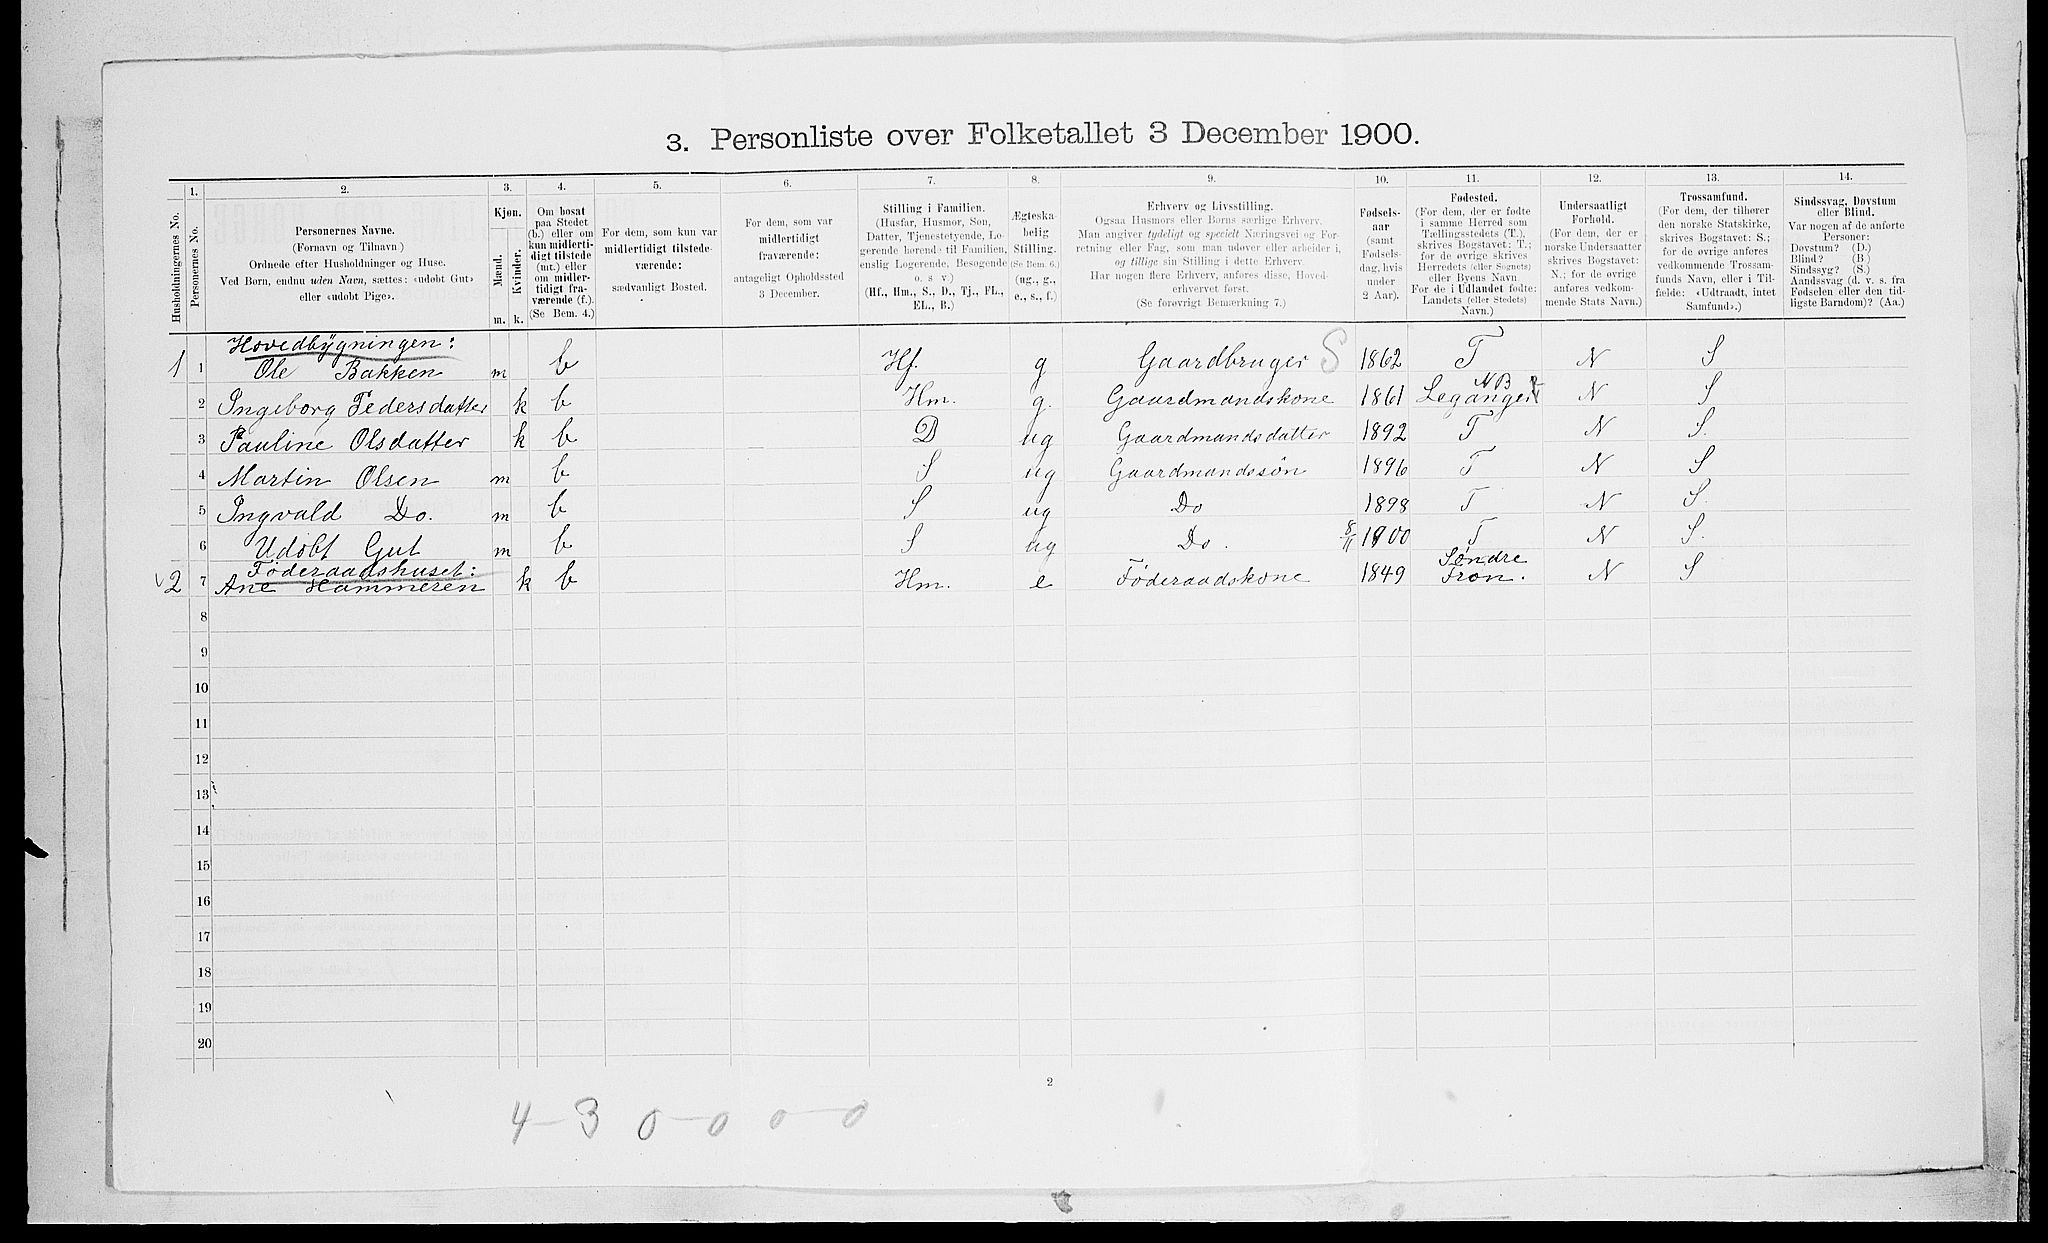 3. Personliste over Folketallet 3 December 1900.
Husholdningernes No.
1.
Personernes No.
2.
Personernes Navne.
(Fornavn og Tilnavn)
Ordnede efter Husholdninger og Huse.
Ved Børn, endnu uden Navn, sættes: «udøbt Gut»
eller «udøbt Pige».
3.
Kjøn.
Mænd.
Kvinder.
m. k.
4.
Om bosat
paa Stedet
(b.) eller om
kun midlerti-
digt tilstede
(mt.) eller
om midler-
tidigt fra-
værende (f.).
(Se Bem. 4.)
5.
For dem, som kun var
midlertidigt tilstede-
værende:
sædvanligt Bosted.
6.
For dem, som var
midlertidigt
fraværende:
antageligt Opholdssted
3 December.
7.
Stilling i Familien.
(Husfar, Husmor, Søn,
Datter, Tjenestetyende, Lo-
gerende hørende til Familien,
enslig Logerende, Besøgende
o. s. v.)
(Hf., Hm., S., D., Tj., FL.,
EL., B.)
8.
Ægteska-
belig
Stilling.
(Se Bem. 6.)
(ug., g.,
e., s., f.)
9.
Erhverv og Livsstilling.
Ogsaa Husmors eller Børns særlige Erhverv.
Man angiver tydeligt og specielt Næringsvei og For-
retning eller Fag, som man udøver eller arbeider i,
og tillige sin Stilling i dette Erhverv.
Har nogen flere Erhverv, anføres disse, Hoved-
erhvervet først.
(Se forøvrigt Bemærkning 7.)
10.
Fødsels-
aar
(samt
Fødsels-
dag, hvis
under
2 Aar).
11.
Fødested.
(For dem, der er fødte
i samme Herred som
Tællingsstedets (T.),
skrives Bogstavet: T.;
for de øvrige skrives
Herredets (eller Sognets)
eller Byens Navn
For de i Udlandet fødte:
Landets (eller Stedets)
Navn.)
12.
Undersaatligt
Forhold.
(For dem, der er
norske Undersaatter
skrives Bogstavet:
N.; for de øvrige
anføres vedkom-
mende Stats Navn.)
13.
Trossamfund.
(For dem, der tilhører
den norske Statskirke,
skrives Bogstavet: S.;
for de øvrige anføres
vedkommende Trossam-
funds Navn, eller i Til-
fælde: «Udtraadt, intet
Samfund».)
14.
Sindssvag, Døvstum
eller Blind.
Var nogen af de anførte
Personer:
Døvstum? (D.)
Blind? (B)
Sindssyg? (S.)
Aandssvag (d. v. s. fra
Fødselen eller den tid-
ligste Barndom)? (Aa.)
Hovedbygningen:
1 1 Ole Bakken m b Hf. g Gaardbruger S 1862 T N S
2 Ingeborg Pedersdatter k b Hm. g. Gaardmandskone 1861 Leganger NB N S
3 Pauline Olsdatter k b D ug Gaardmandsdatter 1892 T N S.
4 Martin Olsen m b S ug Gaardmandssøn 1896 T N S
5 Ingvald Do. m b S ug Do 1898 T N S.
6 Udøbt Gut m b S ug Do. 8/11 1900 T N S.
Føderaadshuset:
2 7 Ane Hammeren k b Hm. e Føderaadskone 1849 Søndre Fron. N S
8
9
10
11
12
13
14
15
16
17
18
19
20
2
4-3 0-0-0-0